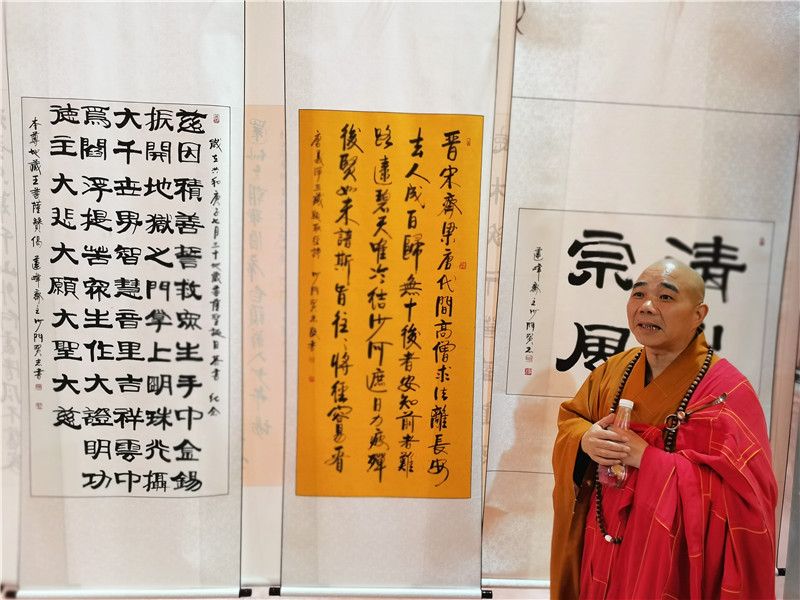 歲在六和庚子七月三十地藏菩薩聖誕日恭書 紀念
慈因積善誓救衆生手中金錫
振開地獄之門掌上明珠光攝
大千世界智慧音里吉祥雲中
爲閻浮提苦衆生作大證明功
德主大悲大願大聖大慈
本尊地藏王菩薩贊偈 蓮峰齋主沙門賢志書
晋宋齊梁唐代間高僧求法離長安
去人成百歸無十後者安知前者難
路遠碧天唯冷結沙河遮日力疲殫
後賢如未諳斯旨往往將經容易看
唐義淨三藏取經詩 沙門賢志敬書
清
宗風
蓮峰齋主沙門賢志